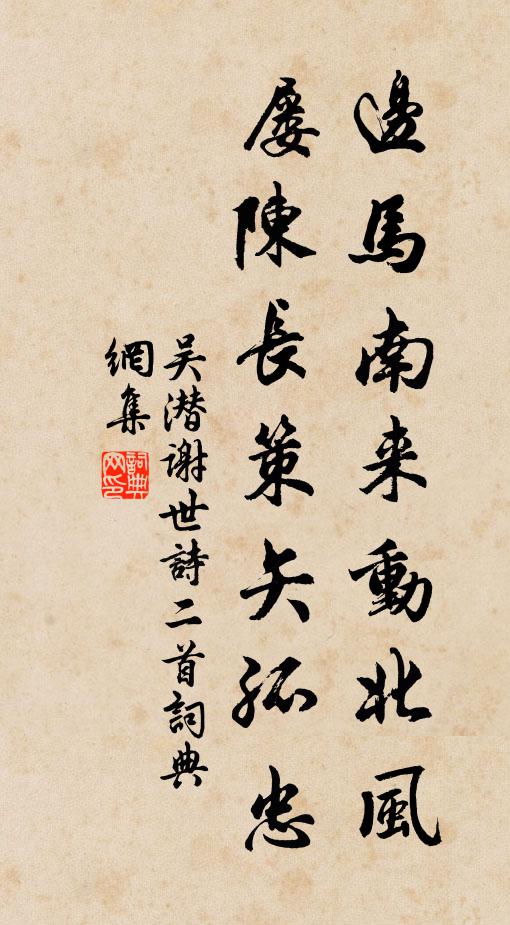 邊馬南来動北風
屡陳長策矢孤忠
吴潜謝世詩二首詞典
網集
詞典網印